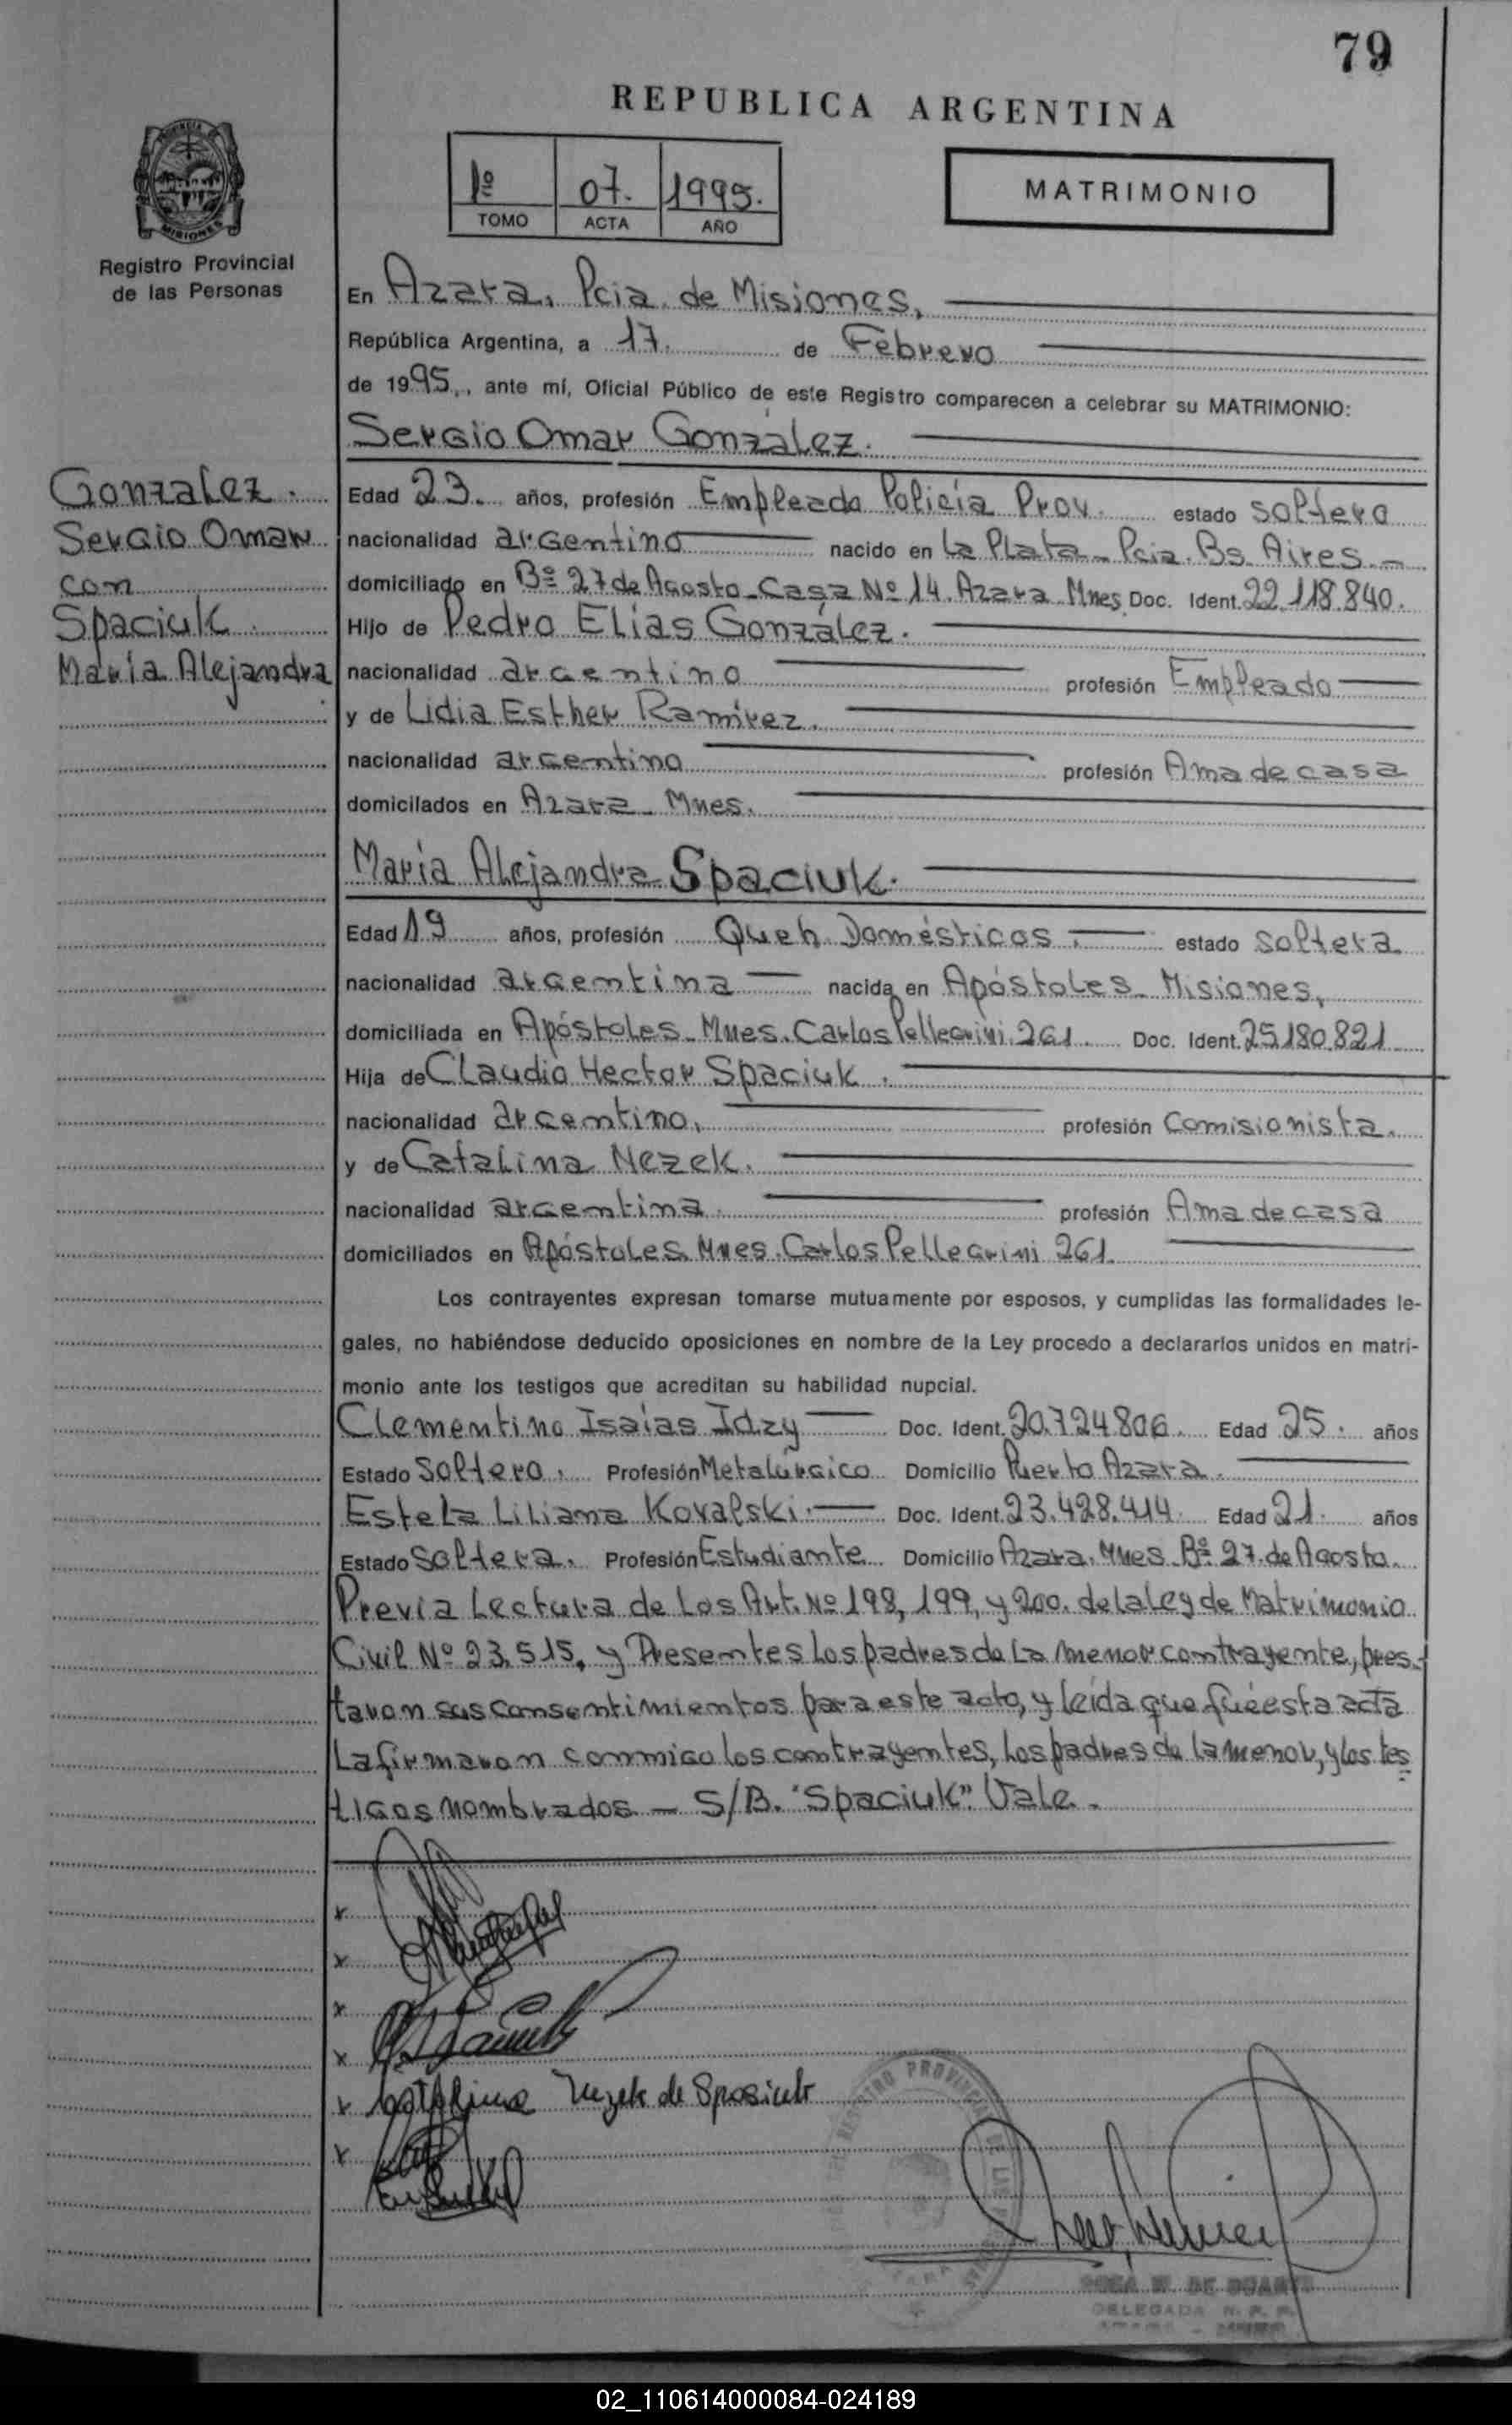 79
REPUBLICA ARGENTINA
1º 07. 1995.
TOMO ACTA AÑO
MATRIMONIO
PROVINCIA DE MISIONES
Registro Provincial
de las Personas
En Azara, Pcia. de Misiones,
República Argentina, a 17. de Febrero
de 1995, ante mí, Oficial Público de este Registro comparecen a celebrar su MATRIMONIO:
Sergio Omar González.
Gonzalez.
Sergio Omar
con
Spaciuk.
María Alejandra
Edad 23. años, profesión Empleado Policía Prov. estado soltero
nacionalidad argentino nacido en La Plata - Pcia. Bs. Aires.-
domiciliado en Bº 27 de Agosto - Casa Nº 14. Azara - Mnes Doc. Ident. 22.118.840.
Hijo de Pedro Elías González.
nacionalidad argentino profesión Empleado
y de Lidia Esther Ramírez.
nacionalidad argentino profesión Ama de casa
domicilados en Azara - Mnes.
María Alejandra Spaciuk.
Edad 19 años, profesión Queh. Domésticos. estado soltera
nacionalidad argentina nacida en Apóstoles - Misiones,
domiciliada en Apóstoles - Mnes. Carlos Pellegrini 261. Doc. Ident. 25.180.821
Hija de Claudio Hector Spaciuk.
nacionalidad argentino, profesión Comisionista.
y de Catalina Nezek.
nacionalidad argentina. profesión Ama de casa
domiciliados en Apóstoles. Mnes. Carlos Pellegrini 261.
Los contrayentes expresan tomarse mutuamente por esposos, y cumplidas las formalidades le-
gales, no habiéndose deducido oposiciones en nombre de la Ley procedo a declararlos unidos en matri-
monio ante los testigos que acreditan su habilidad nupcial.
Clementino Isaías Idzy Doc. Ident. 20.724.806. Edad 25. años
Estado Soltero. Profesión Metalúrgico Domicilio Puerto Azara.
Estela Liliana Kovalski. Doc. Ident. 23.428.414. Edad 21. años
Estado Soltera. Profesión Estudiante Domicilio Azara. Mnes. Bº 27 de Agosto.
Previa Lectura de Los Art. Nº 198, 199, y 200. de la Ley de Matrimonio
Civil Nº 23.515, y Presentes Los padres de La menor contrayente, pres-
taron sus consentimientos para este acto, y leída que fué esta acta
La firmaron conmigo los contrayentes, Los padres de la menor, y los tes
tigos nombrados - S/B. "Spaciuk". Vale.
x
x
x
x
x Catalina Nezek de Spasiuk
x
REGISTRO PROVINCIAL DE LAS PERSONAS
DE DUARTE
DELEGADA R. P. P.
02_110614000084-024189